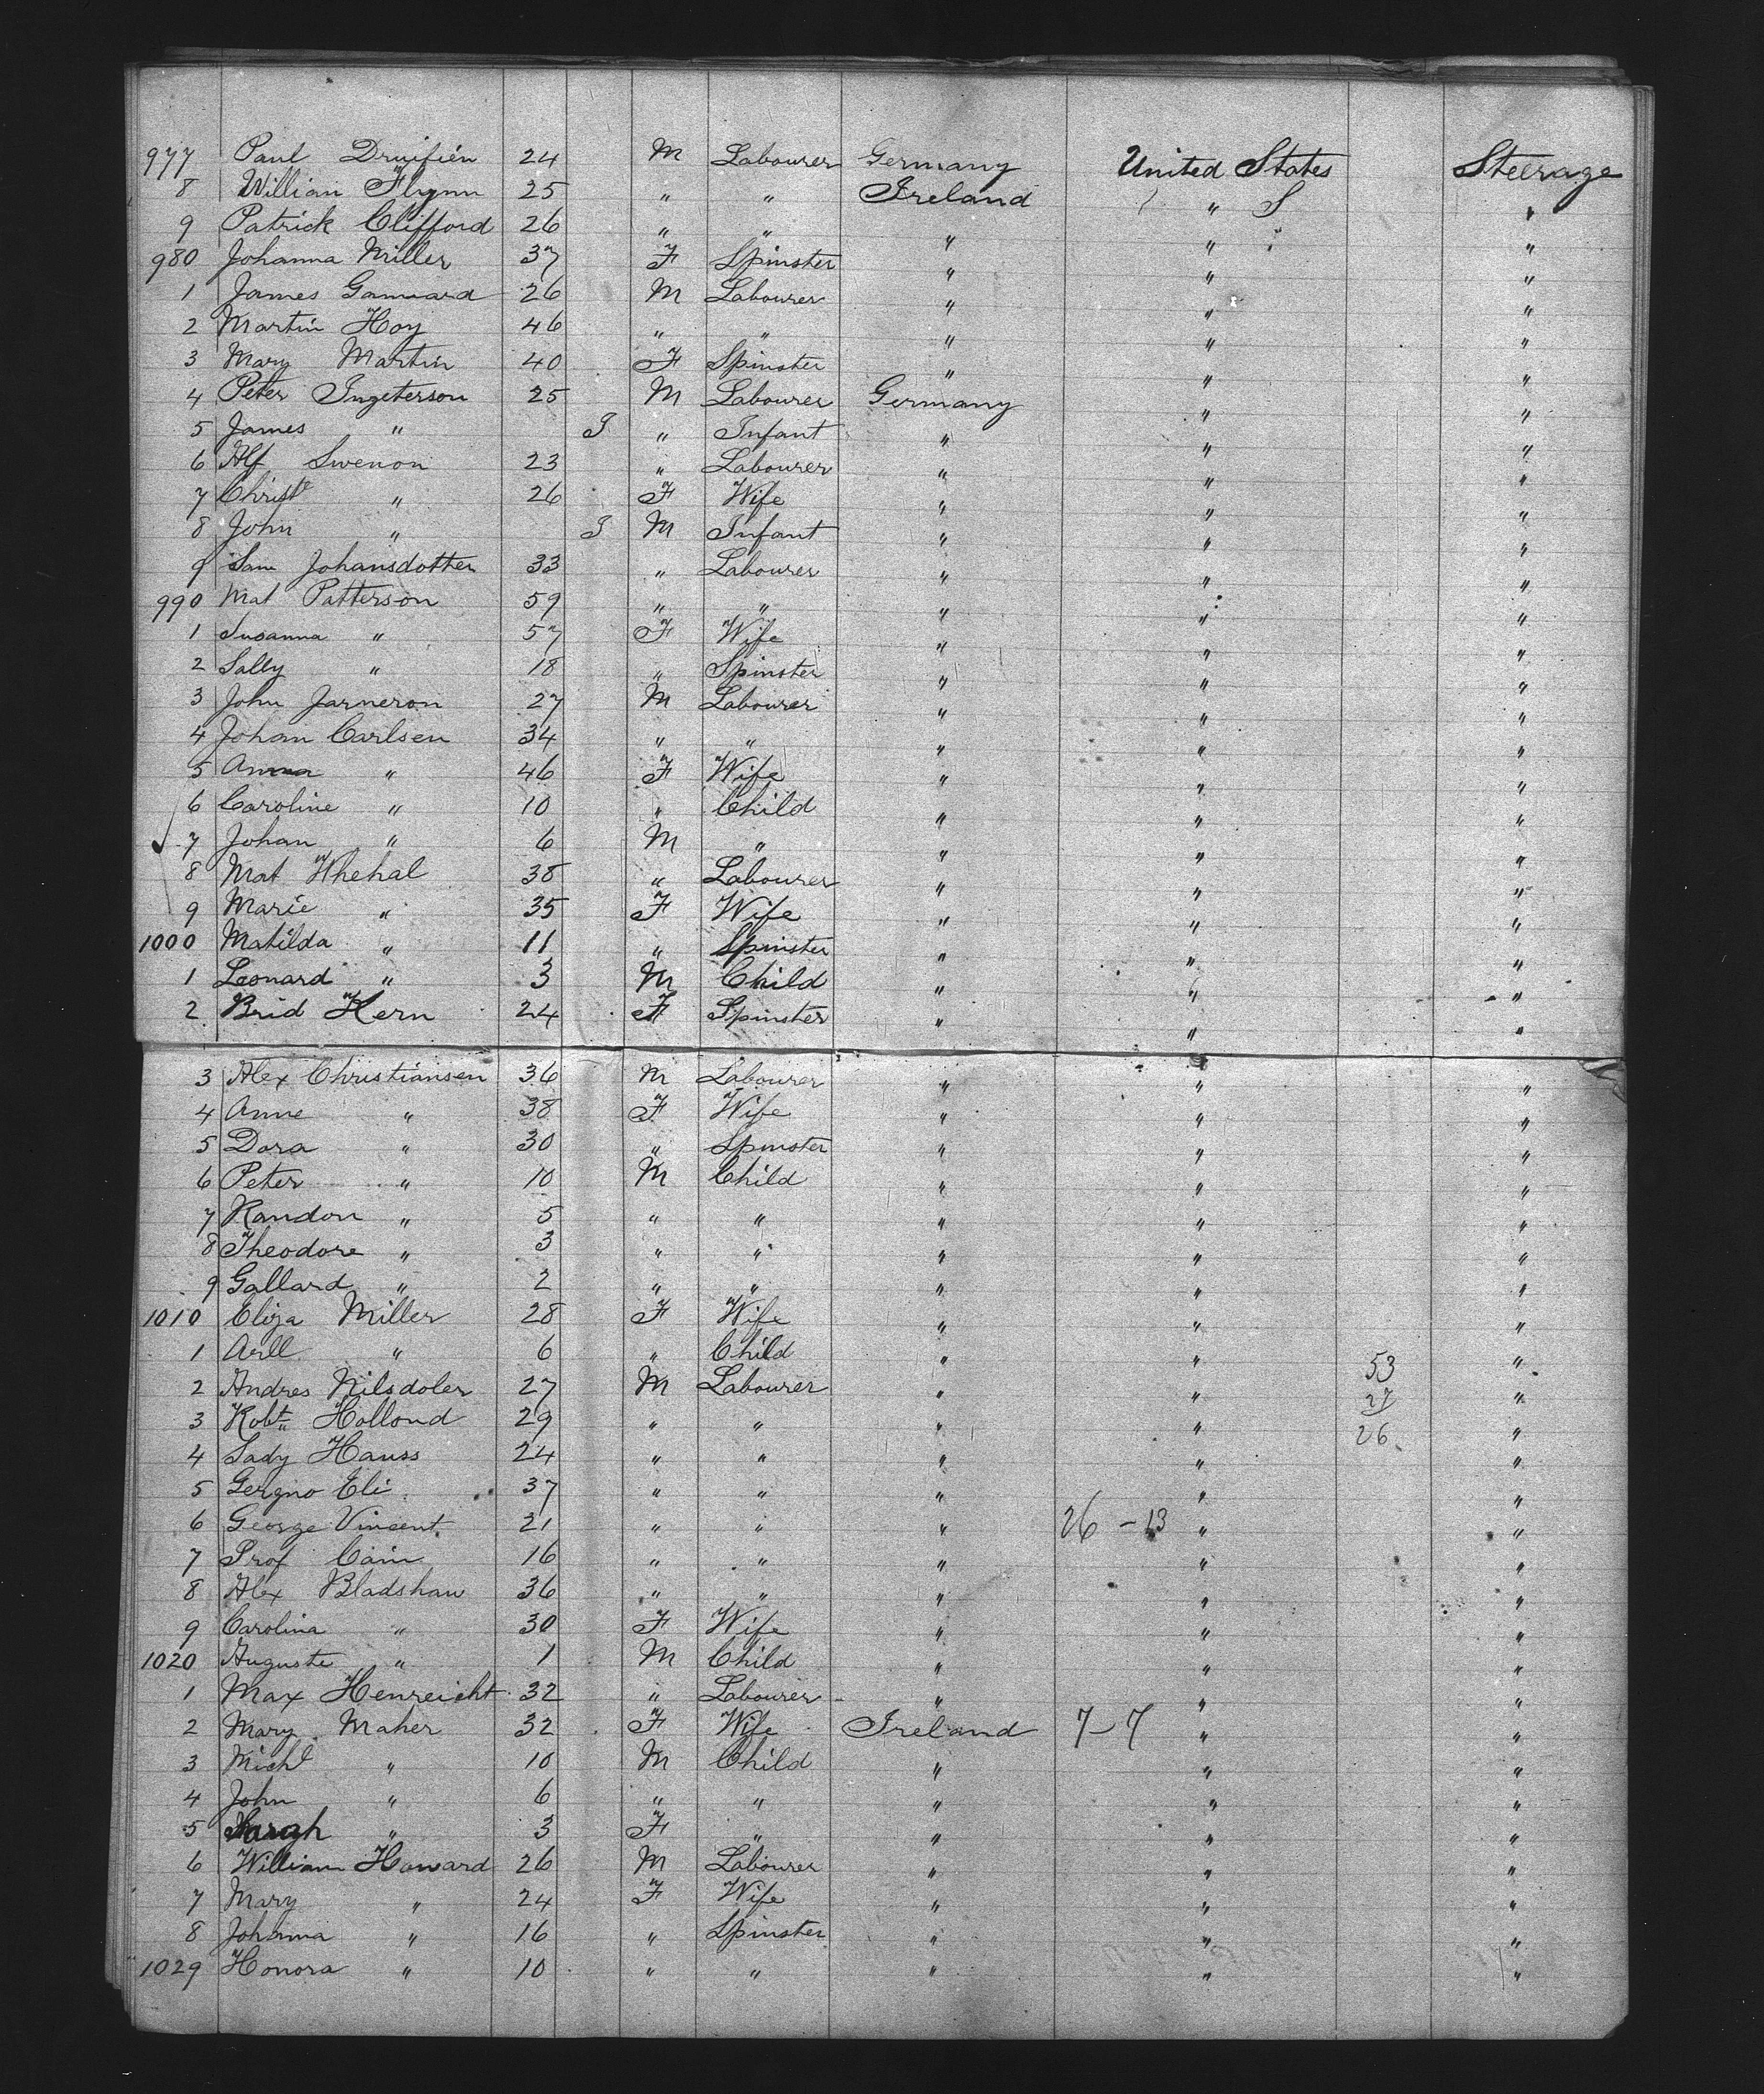 977 Paul Druifién 24 M Labourer Germany United States Steerage
8 William Flynn 25 " " Ireland " S "
9 Patrick Clifford 26 " " " " "
980 Johanna Miller 37 F Spinster " " "
1 James 26 M Labourer " " "
2 Martin Hoy 46 " " " " "
3 Mary Martin 40 F Spinster " " "
4 Peter Ingeterson 25 M Labourer Germany " "
5 James " I " Infant " " "
6 Alf Swenon 23 " Labourer " " "
7 Christe " 26 F Wife " " "
8 John " I M Infant " " "
9 Sam Johansdotter 33 " Labourer " " "
990 Mat Patterson 59 " " " " "
1 Susanna " 57 F Wife " " "
2 Sally " 18 " Spinster " " "
3 John Jarneron 27 M Labourer " " "
4 Johan Carlsen 34 " " " " "
5 Anna " 46 F Wife " " "
6 Caroline " 10 " Child " " "
7 Johan " 6 M " " " "
8 Mat Whehal 38 " Labourer " " "
9 Marie " 35 F Wife " " "
1000 Matilda " 11 " Spinster " " "
1 Leonard " 3 M Child " " "
2 Brid Hern 24 F Spinster " " "
3 Alex Christiansen 36 M Labourer " " "
4 Anne " 38 F Wife " " "
5 Dora " 30 " Spinster " " "
6 Peter " 10 M Child " " "
7 Randon " 5 " " " " "
8 Theodore " 3 " " " " "
9 Gallard " 2 " " " " "
1010 Eliza Miller 28 F Wife " " "
1 Arll " 6 " Child " " 53 "
2 Andres Nilsdoler 27 M Labourer " " 27 "
3 Robt Hollond 29 " " " " 26 "
4 Lady Hauss 24 " " " " "
5 Gergno Eli 37 " " " " "
6 George Vincent 21 " " " 26 - 13 " "
7 Prof Cain 16 " " " " "
8 Alex Bladshaw 36 " " " " "
9 Carolina " 30 F Wife " " "
1020 Auguste " 1 M Child " " "
1 Max Henreicht 32 " Labourer " " "
2 Mary Maher 32 F Wife Ireland 7-7 " "
3 Michl " 10 M Child " " "
4 John " 6 " " " " "
5 Sarah " 3 F " " " "
6 William Howard 26 M Labourer " " "
7 Mary " 24 F Wife " " "
8 Johanna " 16 " Spinster " " "
1029 Honora " 10 " " " " "